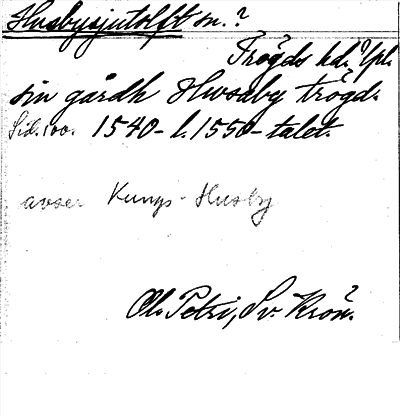 Husbysjutolft sn.?
Trögds hd. Upl.
sin gårdh Hwsaby trögd.
Sid. 100. 1540- l. 1550-talet.
avser Kungs-Husby
Ol. Petri, Sv. Krön.